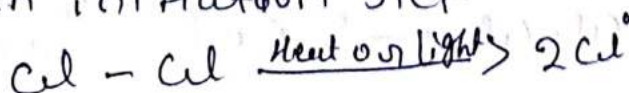 Cl - Cl Heat or light> 2Cl°